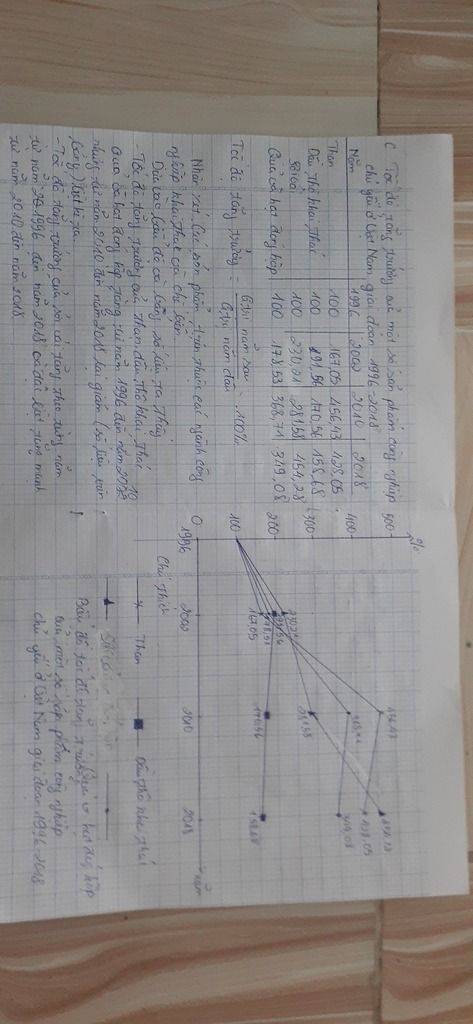 c Tốc độ tăng trưởng của một số sản phẩm công nghiệp
chủ yếu ở Việt Nam giai đoạn 1996 2018
Năm 1996 2000 2010 2018
Than 100 167,05 456,43 428,05
Dầu thô khai thác 100 191,56 170,56 158,68
100 230,21 281,58 454,28
Quả và hạt đóng hộp 100 178,53 368,71 349,08
Tốc độ tăng trưởng = Giá trị năm sau
Giá trị năm đầu . 100%
Nhận xét Các sản phẩm thuộc các ngành công
nghiệp khai thác và chế biến
Dựa vào biểu đồ và bảng số liệu ta thấy
- Tốc độ tăng trưởng của than dầu thô khai thác
Quả và hạt đóng hộp tăng từ năm 1996 đến năm
nhưng từ năm 2010 đến năm 2018 lại giảm (số liệu
bảng)
- Tốc độ tăng trưởng của vải tăng theo từng năm
từ năm 1996 đến năm 2018 và đặc biệt tăng mạnh
từ năm 2010 đến năm 2018
%
500
400
300
200
100
0
1996 2000 2010 2018 năm
456,43
368,71
281,58
170,56
191,56
178,53
167,05
428,05
349,08
158,68
Chú thích
Than
Dầu thô khai thác
Quả và hạt đóng hộp
Biểu đồ tốc độ tăng trưởng
của một số sản phẩm công nghiệp
chủ yếu ở Việt Nam giai đoạn 1996-2018